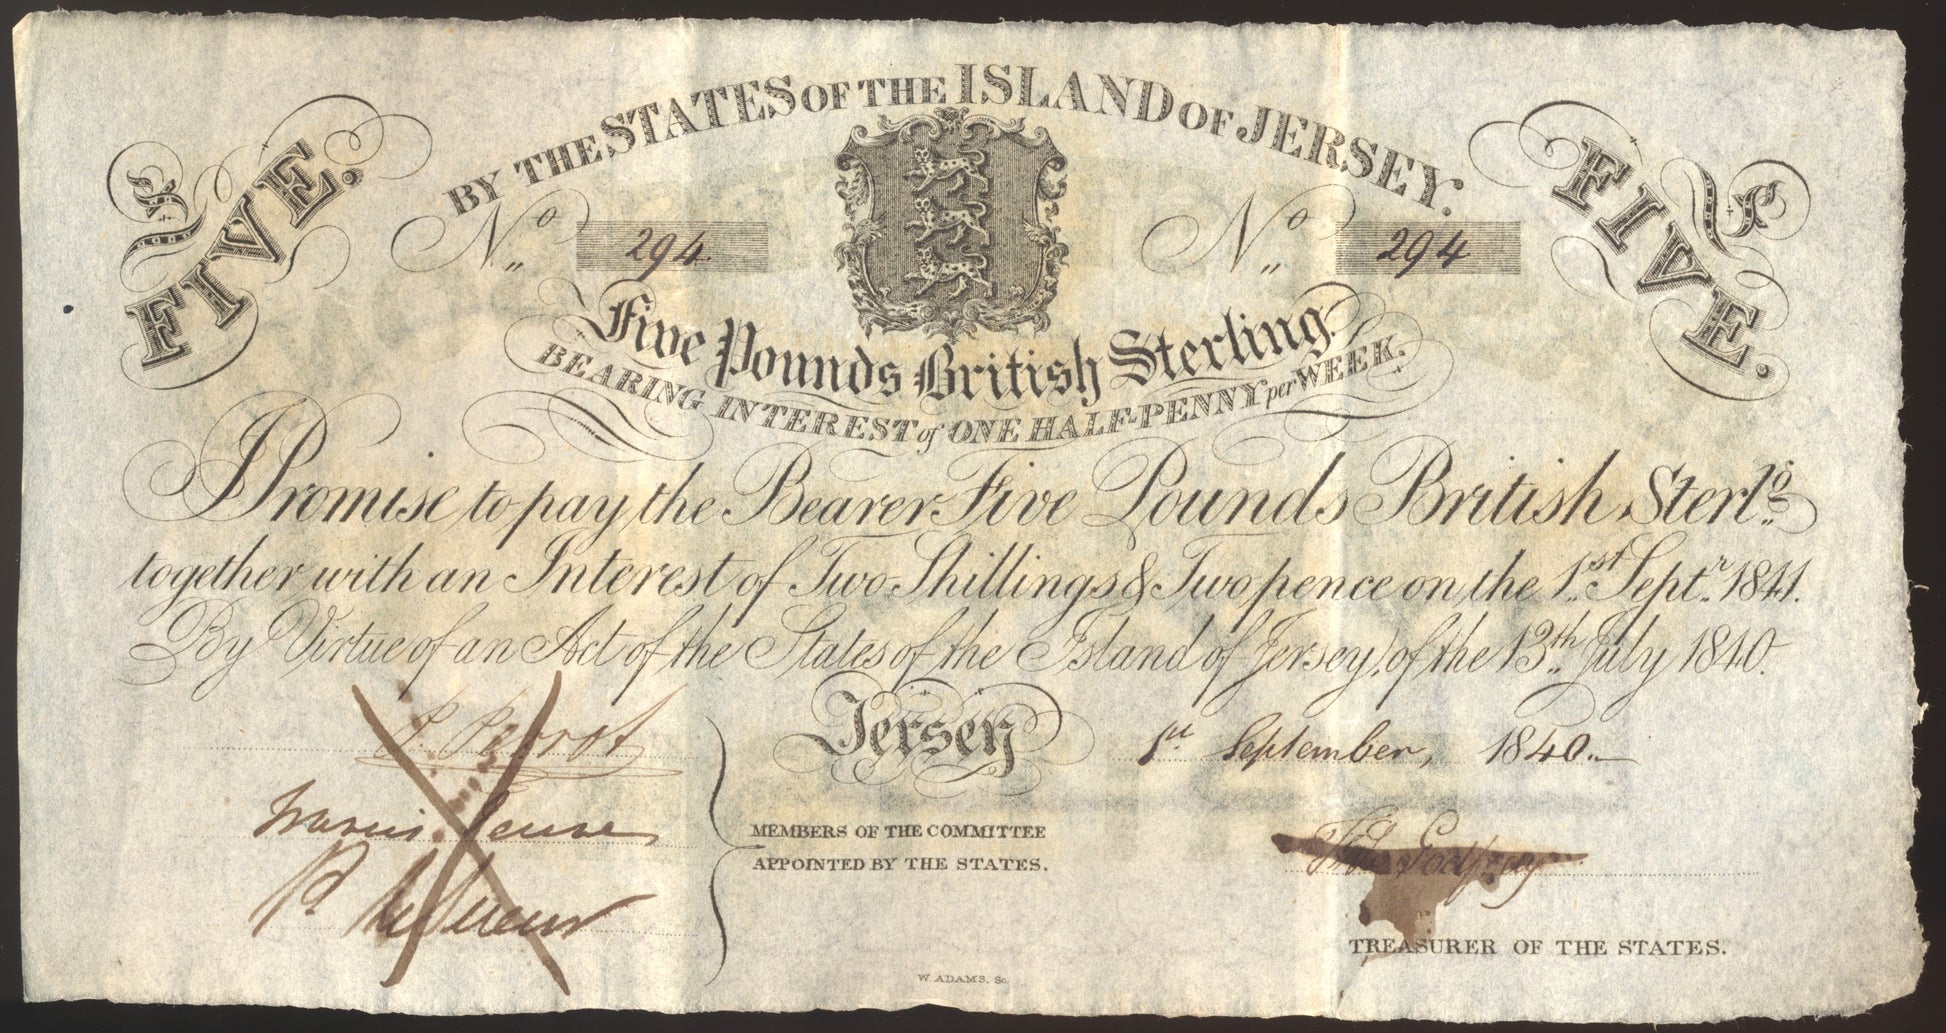 BY THE STATES OF THE ISLAND OF JERSEY.
£ FIVE.
£ FIVE.
No. 294.
No. 294
Five Pounds British Sterling.
BEARING INTEREST of ONE HALF-PENNY per WEEK.
I Promise to pay the Bearer Five Pounds British Sterlg.
together with an Interest of Two Shillings & Two pence on the 1st. Septr. 1841.
By Virtue of an Act of the States of the Island of Jersey, of the 13th. July 1840.
Jersey 1st September, 1840.
P. Perrot
MEMBERS OF THE COMMITTEE
APPOINTED BY THE STATES.
Godfray
TREASURER OF THE STATES.
W. ADAMS, Sc.